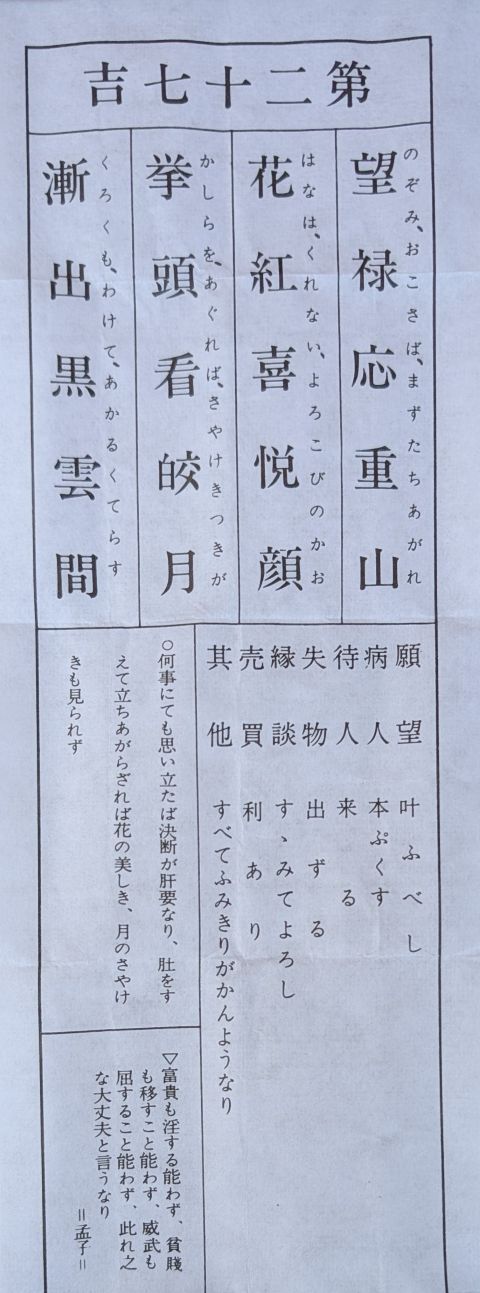 第二十七吉
望禄応重山
のぞみ、おこさば、まずたちあがれ
花紅喜悦顔
はなは、くれない、よろこびのかお
挙頭看皎月
かしらを、あぐれば、さやけきつきが
漸出黒雲間
くろくも、わけて、あかるくてらす
願望 叶ふべし
病人 本ぷくす
待人 来る
失物 出ずる
縁談 すゝみてよろし
売買 利あり
其他 すべてふみきりがかんようなり
○何事にても思い立たば決断が肝要なり、肚をす
えて立ちあがらざれば花の美しき、月のさやけ
きも見られず
▽富貴も淫する能わず、貧賤
も移すこと能わず、威武も
屈すること能わず、此れ之
な大丈夫と言うなり
＝孟子＝